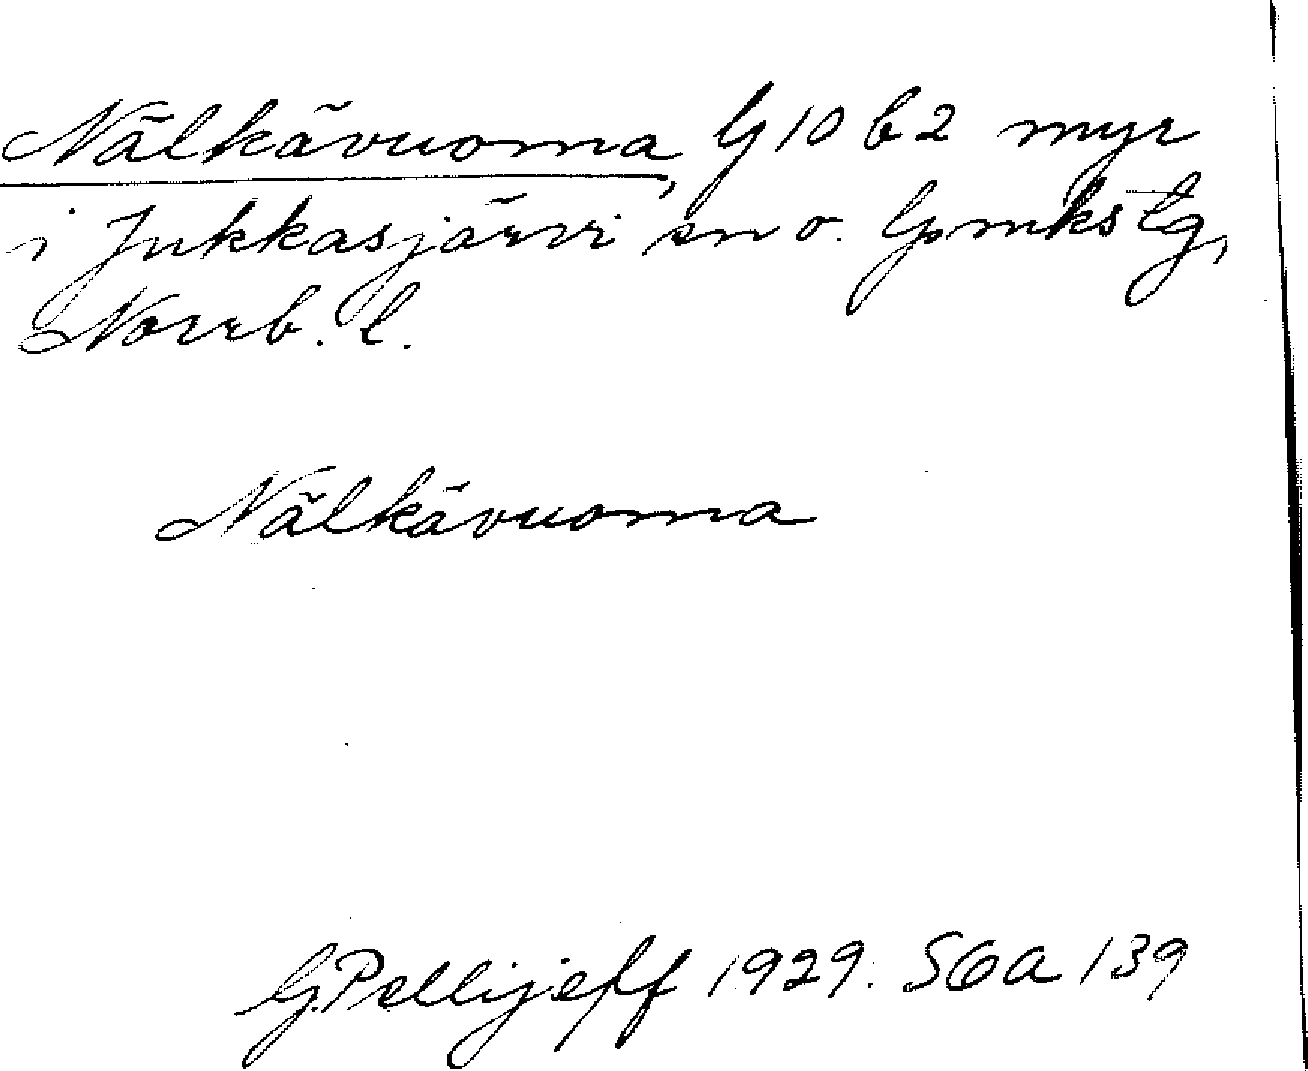 Nälkävuoma, G 10 b 2 myr
i Jukkasjärvi sn o. Lpmkstg,
Norrb. l.
Nälkävuoma
G. Pellijeff 1929. S6a 139